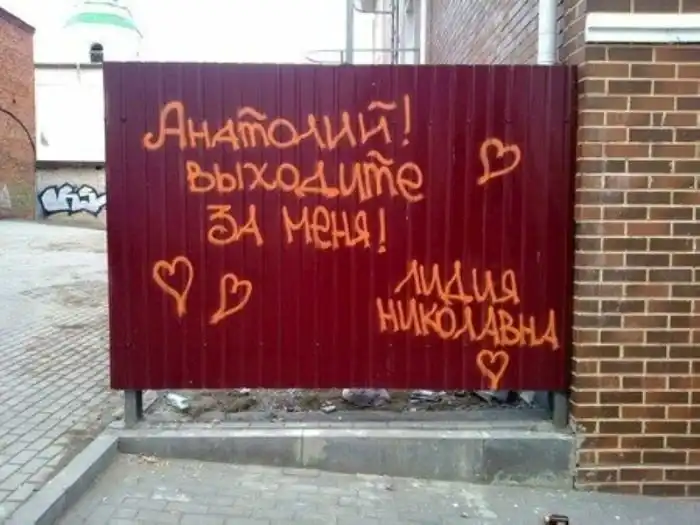 Анатолий!
выходите
за меня!
Лидия
Николавна